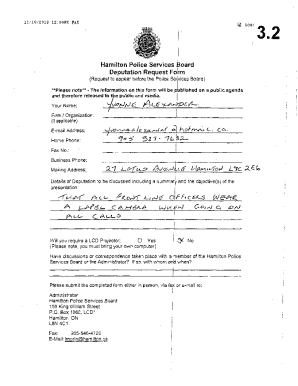 12/10/2012 12:00PM FAX
3.2
Hamilton Police Services Board
Deputation Request Form
(Request to appear before the Police Services Board)
**Please note** - The information on this form will be published on a public agenda
and therefore released to the public and media.
Your Name: YVONNE ALEXANDER
Firm / Organization:
(if applicable)
E-mail Address: @hotmail.ca
Home Phone: 905
Fax No.:
Business Phone:
Mailing Address: 27 AVENUE HAMILTON 2E6
Details of Deputation to be discussed including a summary and the objective(s) of the
presentation
THAT ALL FRONT LINE OFFICERS WEAR
A LAPEL CAMERA WHEN GOING ON
ALL CALLS
Will you require a LCD Projector: Yes No
(Please note, you must bring your own computer)
Have discussions or correspondence taken place with a member of the Hamilton Police
Services Board or the Administrator? If so, with whom and when?
Please submit the completed form either in person, via fax or e-mail to:
Administrator
Hamilton Police Services Board
155 King William Street
P.O. Box 1060, LCD1
Hamilton, ON
L8N 4C1
Fax: 905-546-4720
E-Mail: